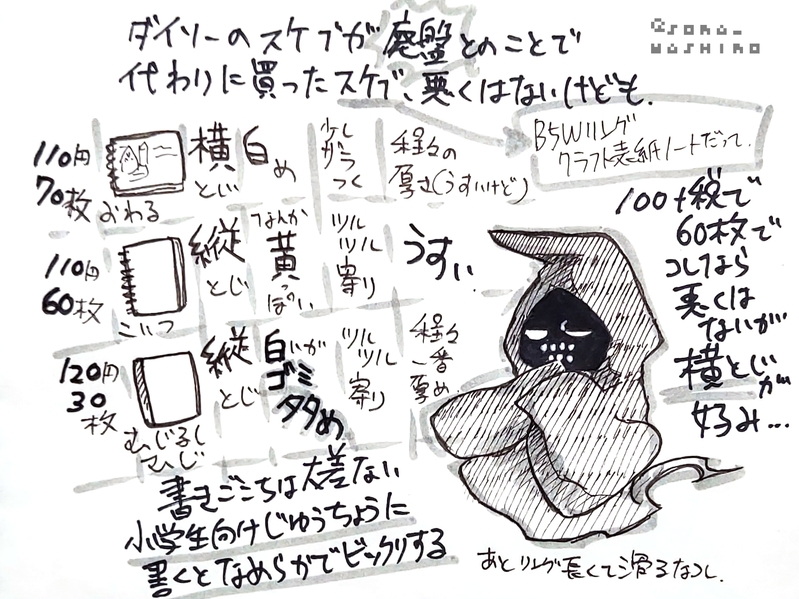 ダイソーのスケブが廃盤とのことで
代わりに買ったスケブ、悪くはないけども、
@SORA_
MASHIRO
B5Wリング
クラフト表紙ノートだって、
110円
70枚
おわる
横とじ
白め
少しザラつく
程々の
厚さ(うすいけど)
110円
60枚
こいつ
縦とじ
なんか黄っぽい
ツルツル寄り
うすい
120円
30枚
むじるし
むじ
縦とじ
白いがゴミ多め
ツルツル寄り
程々
一番
厚め
100+税で
60枚で
コレなら
悪くは
ないが
横とじが
好み…
書きごこちは大差ない
小学生向けじゆうちょうに
書くとなめらかでビックリする
あとリング長くて滑るなコレ、